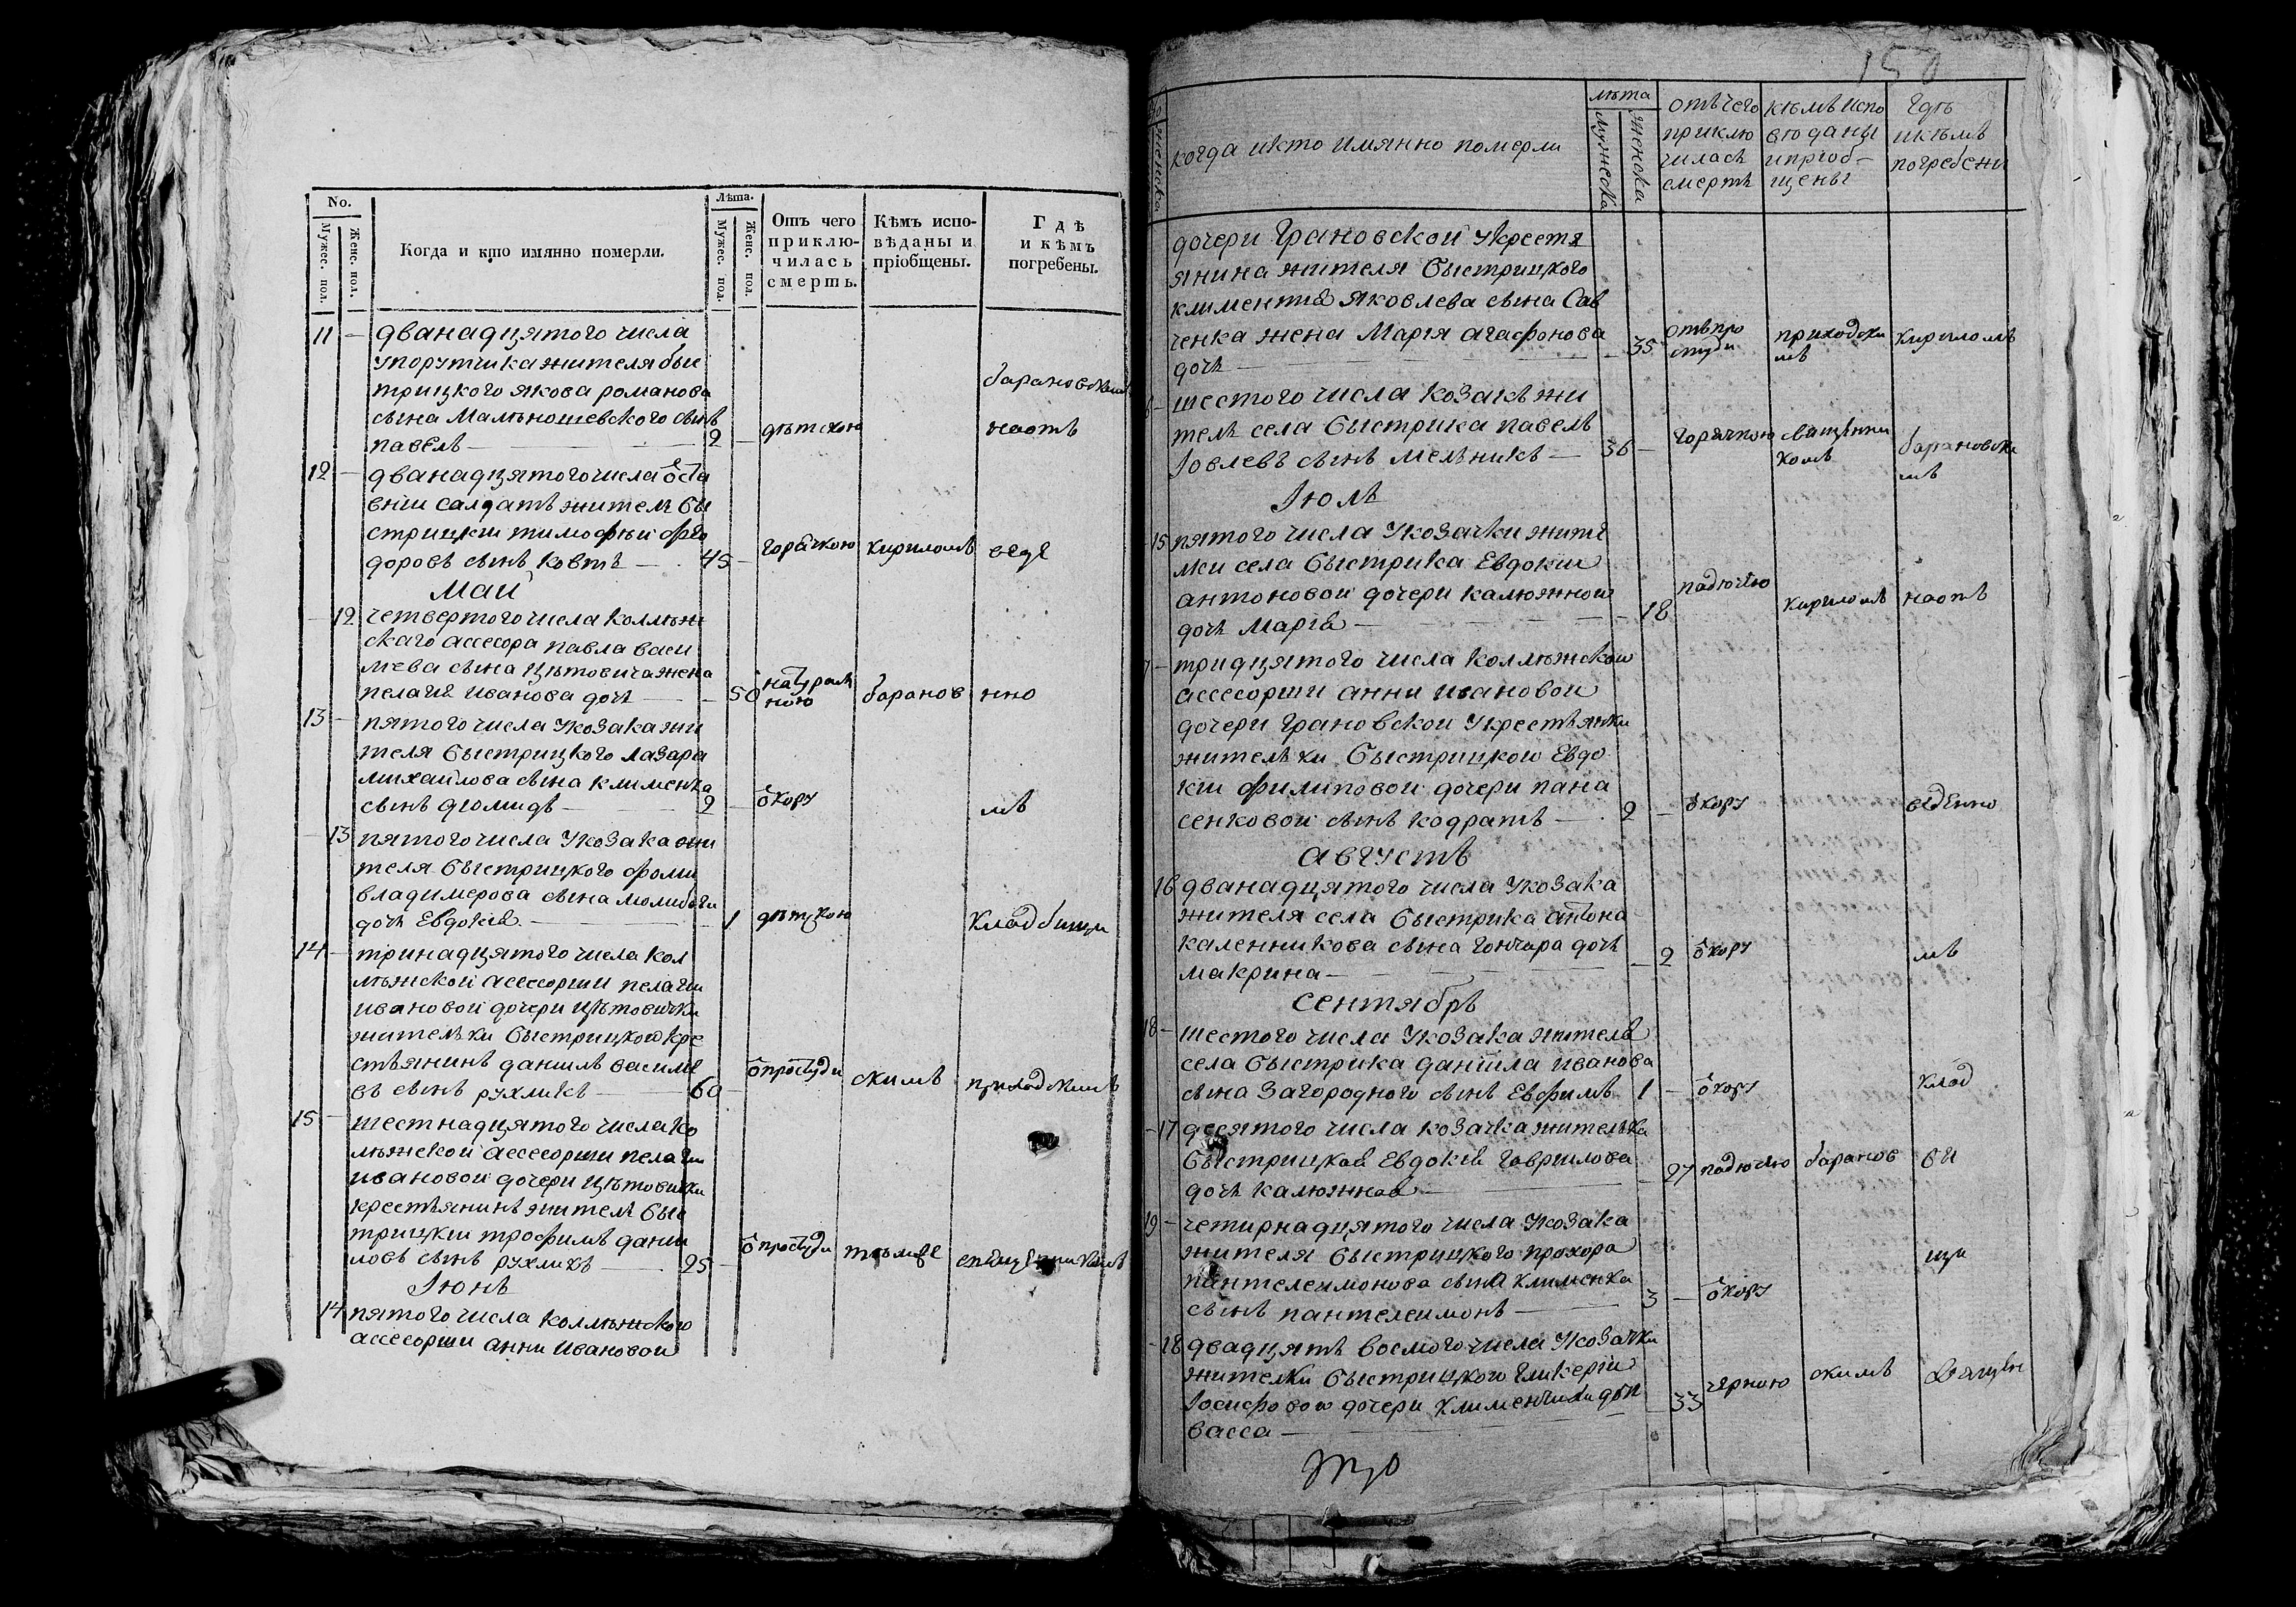 No.
Мужес. пол.
Женс. пол.
Когда и кто имянно померли.
Лѣта.
Мужес. пол.
Женс. пол.
Отъ чего
приклю-
чилась
смерть.
Кѣмъ испо-
вѣданы и
пріобщены.
Гдѣ
и кѣмъ
погребены.
11 — дванадцятого числа
упорутчика жителя бые
трицкого якова романова
сына Мальношевского сынъ
павелъ — 2 — дѣтскою
барановскимъ
наотъ
12 — дванадцятого числа ôста
вній салдатъ жителъ бы
стрицкіи тимофѣй фео
доровъ сынъ ковтъ — 45 — горячкою кириломъ веде
Маій
— 12 четвертого числа коллѣж
скаго ассесора павла васи
лева сына цѣтовича жена
пелагіа иванова дочъ — — 50 натурал
ною баранов нно
13 — пятого числа укозака жи
теля быстрицкого лазара
михайлова сына клименка
сынъ диомидъ — 2 — ôкору мъ
— 13 пятого числа укозака жи
теля быстрицкого фоми
владимерова сына
дочъ Евдокіа — — 1 дѣтцкою кладбищи
14 — тринадцятого числа кол
лѣжской ассесорши пелагіи
ивановой дочери цѣтовички
жителъки быстрицкои кре
стьянинъ даниилъ василе
въ сынъ рухликъ — 60 — ôпростуди скимъ приходскимъ
15 — шестнадцятого числа ко
лѣжской ассесорши пелагіи
ивановой дочери цѣтовички
крестъянинъ жителъ бые
трицкіи трофимъ дани
ловъ сынъ рухликъ — 25 — ôпростуди тъмже священникомъ
Іюнъ
14 пятого числа коллѣжского
ассесорши анни ивановой
150
женска
когда икто имянно померли
лѣта
мужеска
женска
отъчего
приклю
чиласъ
смертъ
кѣмъ испо
вѣданы
ипріоб-
щены
гдѣ
икѣмъ
погребени
дочери Грановской укрестя
янина жителя быстрицкого
климентіа яковлева сына Сав
ченка жена Маріа агафонова
дочъ — — 35 отъпро
студи приходски
мъ кириломъ
шестого числа козакъ жи
телъ села быстрика павелъ
Іовлевъ сынъ мельникъ — 36 — горячкою священни
комъ барановски
мъ
Іюлъ
15 пятого числа укозачки жите
лки села быстрика Евдокіи
антоновой дочери калюжной
дочъ Маріа — — 18 падючею кириломъ наотъ
— тридцятого числа коллѣжской
ассесорши анни ивановой
дочери грановской укрестьянки
жителъки быстрицкои Евдо
кіи филиповой дочери пана
сенковой сынъ кодратъ — 2 — ôкору веденно
августъ
16 дванадцятого числа укозака
жителя села быстрика антона
каленникова сына гончара дочъ
макрина — — 2 ôкору мъ
сентябръ
18 — шестого числа укозака жителя
села быстрика даніила иванова
сына Загородного сынъ Евфимъ 1 — ôкору клад
— 17 десятого числа козачка жителъка
быстрицкаа Евдокіа гаврилова
дочъ калюжнаа — — 27 падючею баранов би
19 — четирнадцятого числа укозака
жителя быстрицкого прохора
пантелеимонова сына клименка
сынъ пантелеимонъ — 3 — ôкору щи
— 18 двадцятъ восмого числа укозачки
жителки быстрицкои гликеріи
Іосифовои дочери клименчихи дочъ
васса — 33 чорною скимъ